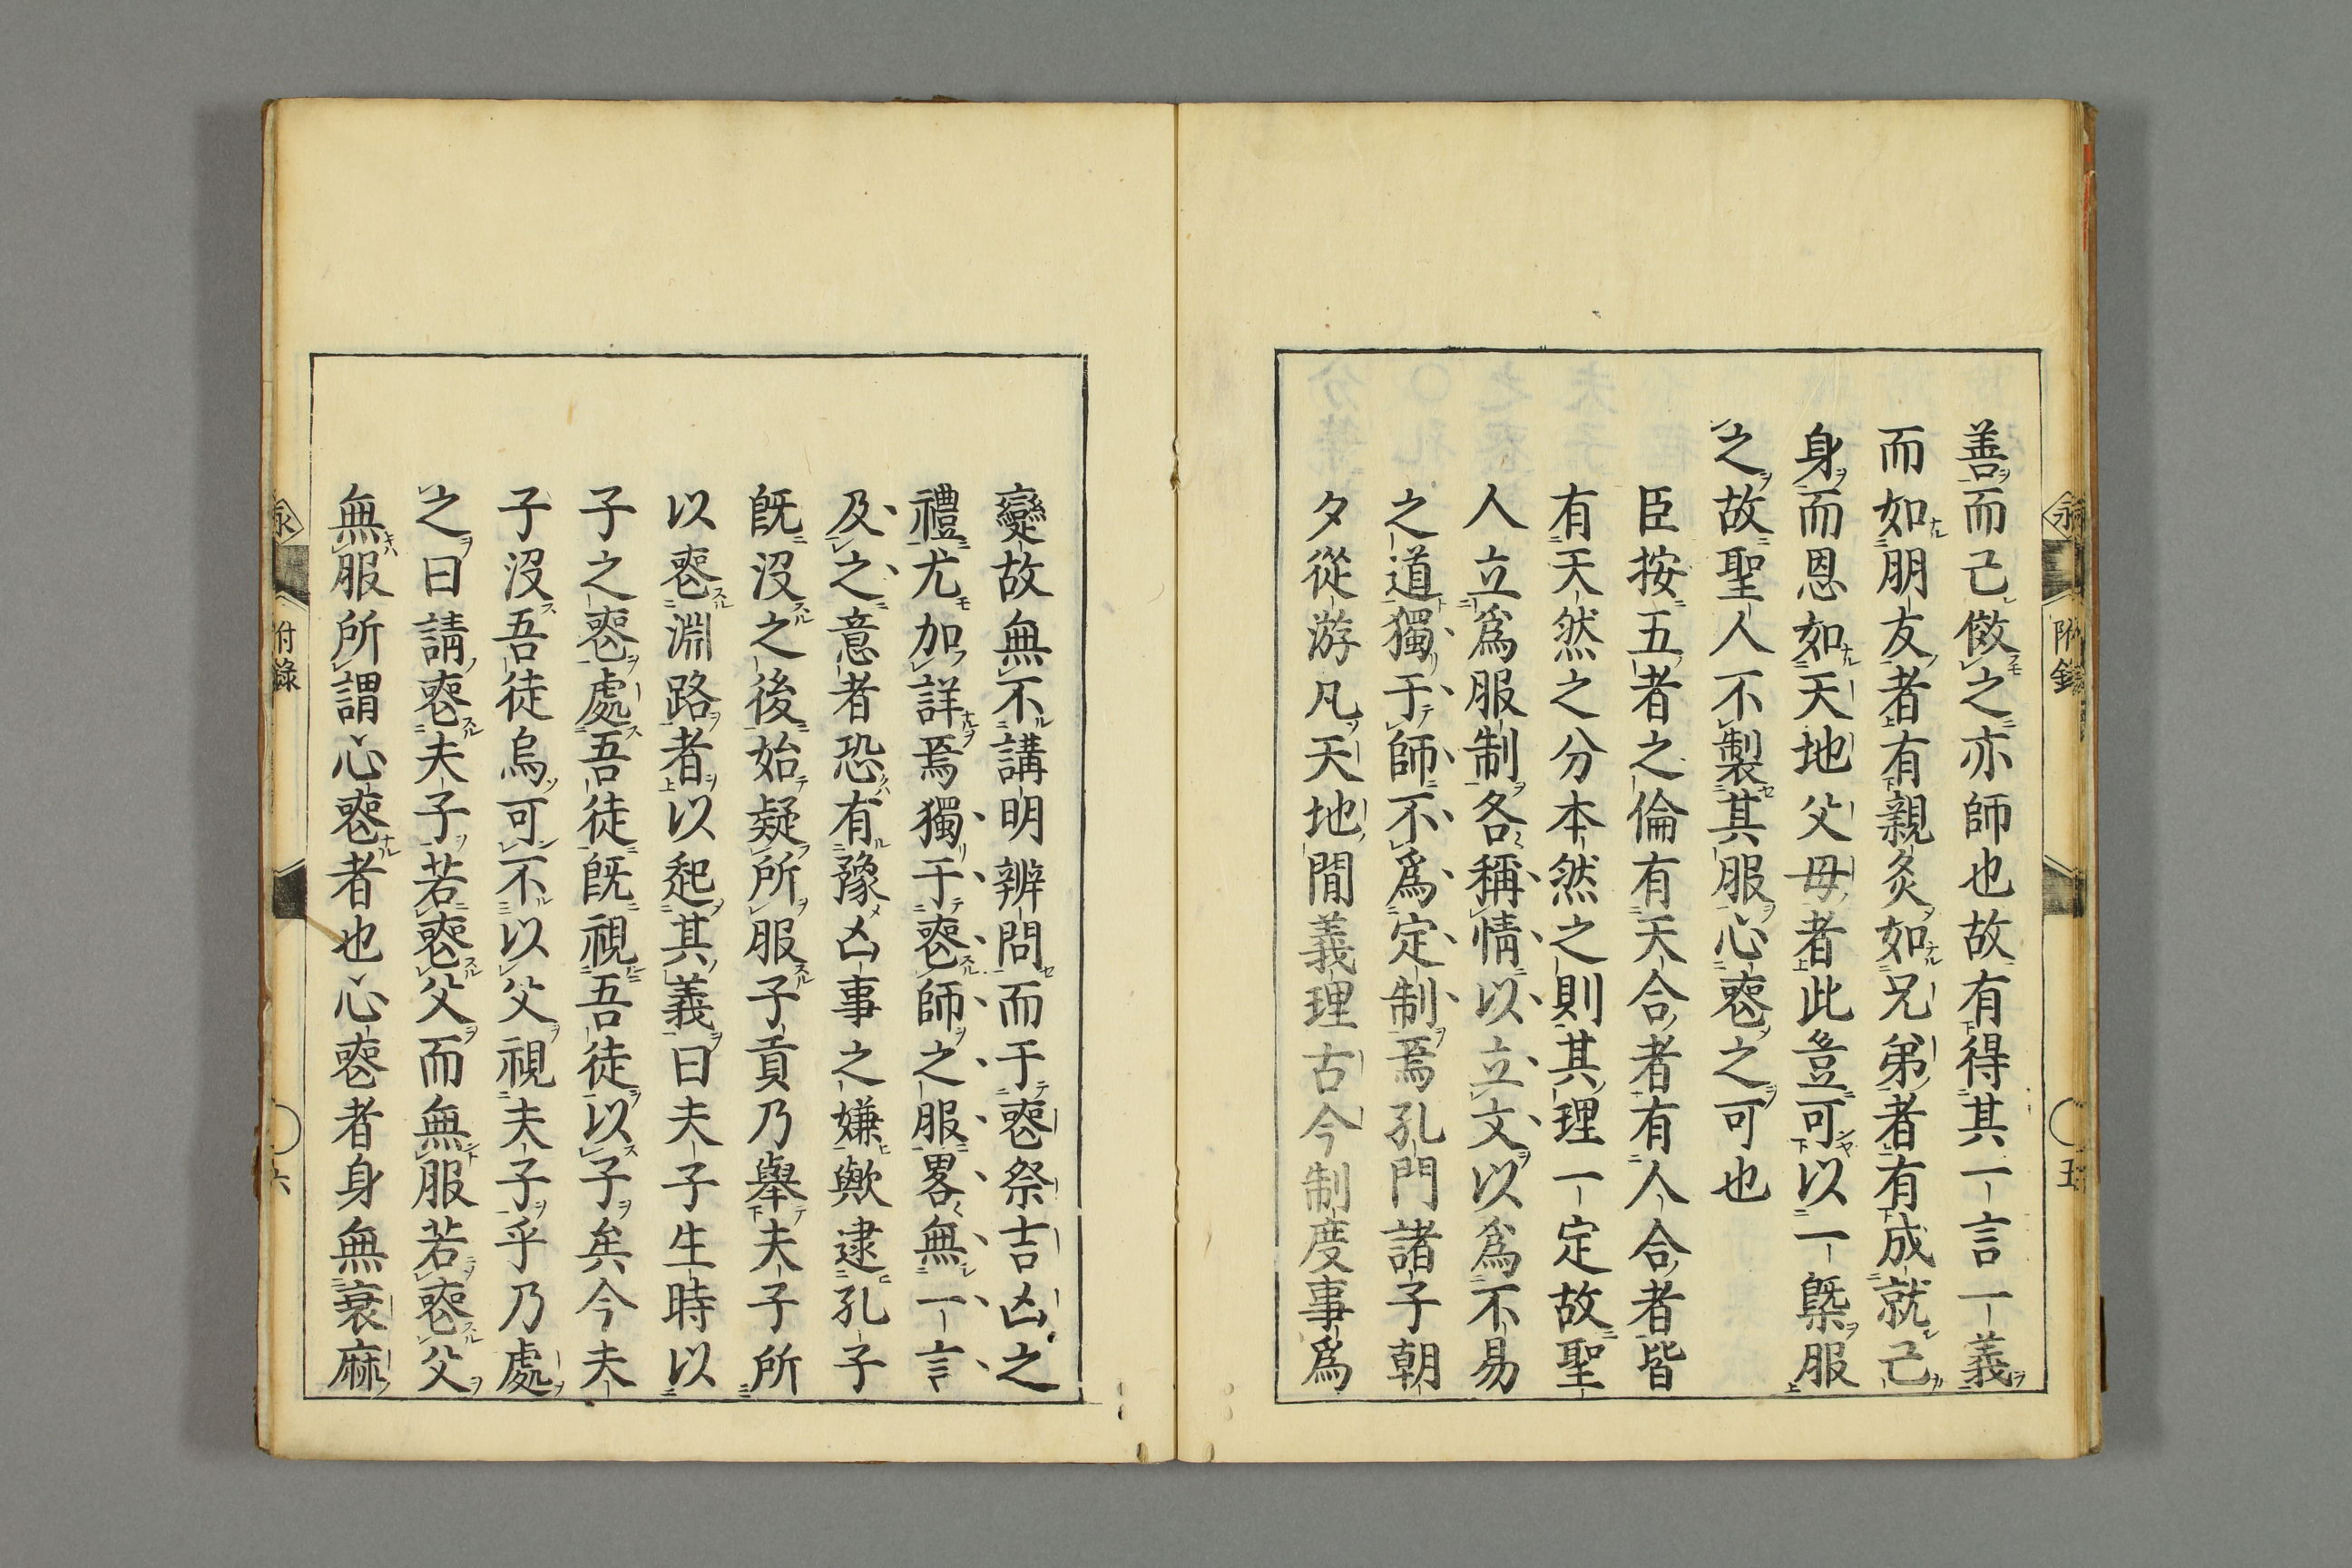 善而己倣之亦師也故有得其一言一義
而如朋友者有親炙如兄弟者有成就己
身而恩如天地父母者此豈可以一槩服
之故聖人不製其服心喪之可也
臣按五者之倫有天合者有人合者皆
有天然之分本然之則其理一定故聖
人立爲服制各稱情以立文以爲不易
之道獨于師不爲定制焉孔門諸子朝
夕從游凡天地間義理古今制度事爲
變故無不講明辨問而于喪祭吉凶之
禮尤加詳焉獨于喪師之服畧無一言
及之意者恐有豫凶事之嫌歟逮孔子
既沒之後始疑所服子貢乃舉夫子所
以喪淵路者以起其義曰夫子生時以
子之喪處吾徒既視吾徒以子矣今夫
子沒吾徒烏可不以父視夫子乎乃處
之曰請喪夫子若喪父而無服若喪父
無服所謂心喪者也心喪者身無衰麻
附錄
五
附錄
六